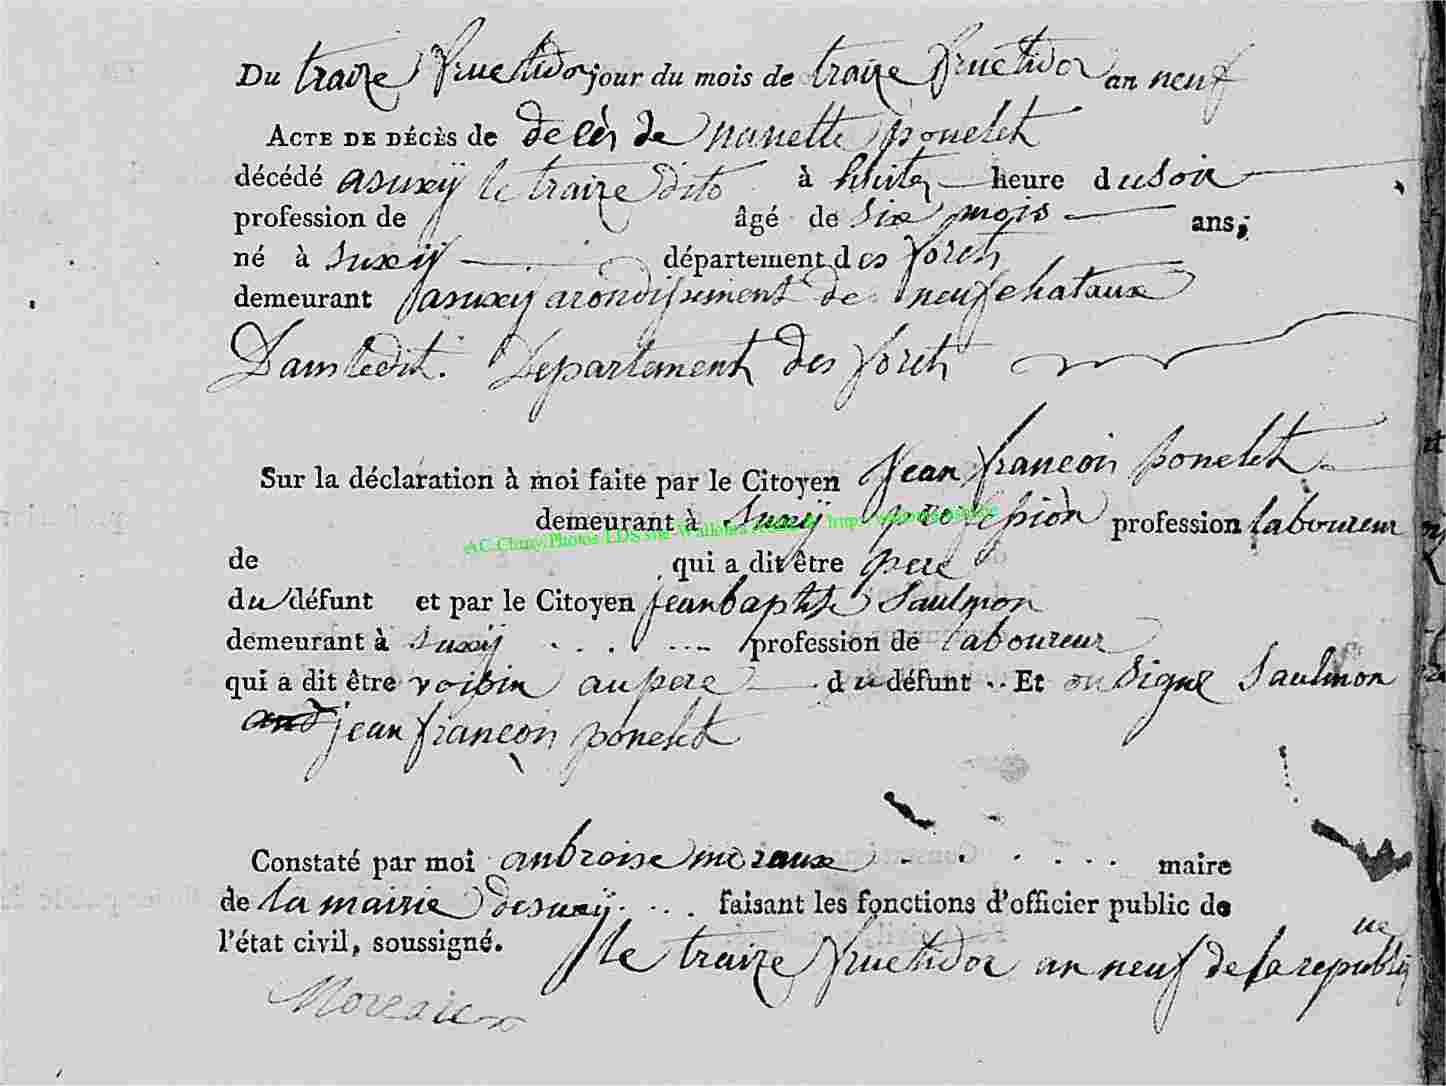 Du traize fructidor jour du mois de traize fructidor an neuf
ACTE DE DÉCÈS de decès de nanette poncelet
décédé a suxÿ le traize dito à huit heure du soir
profession de âgé de six mois ans,
né à suxÿ département des forets
demeurant a suxÿ arondissement de neufchataux
Dans ledit. Departement des forets
Sur la déclaration à moi faite par le Citoyen Jean françois poncelet
demeurant à suxÿ profession profession laboureur
de qui a dit être pere
du défunt et par le Citoyen jean baptiste Saulmon
demeurant à suxÿ profession de laboureur
qui a dit être voisin au pere du défunt .. Et on signé Saulmon
jean françois poncelet
Constaté par moi anbroise moraux maire
de la mairie de suxÿ faisant les fonctions d'officier public de
l'état civil, soussigné. le traize fructidor an neuf de la republique
Moreaux